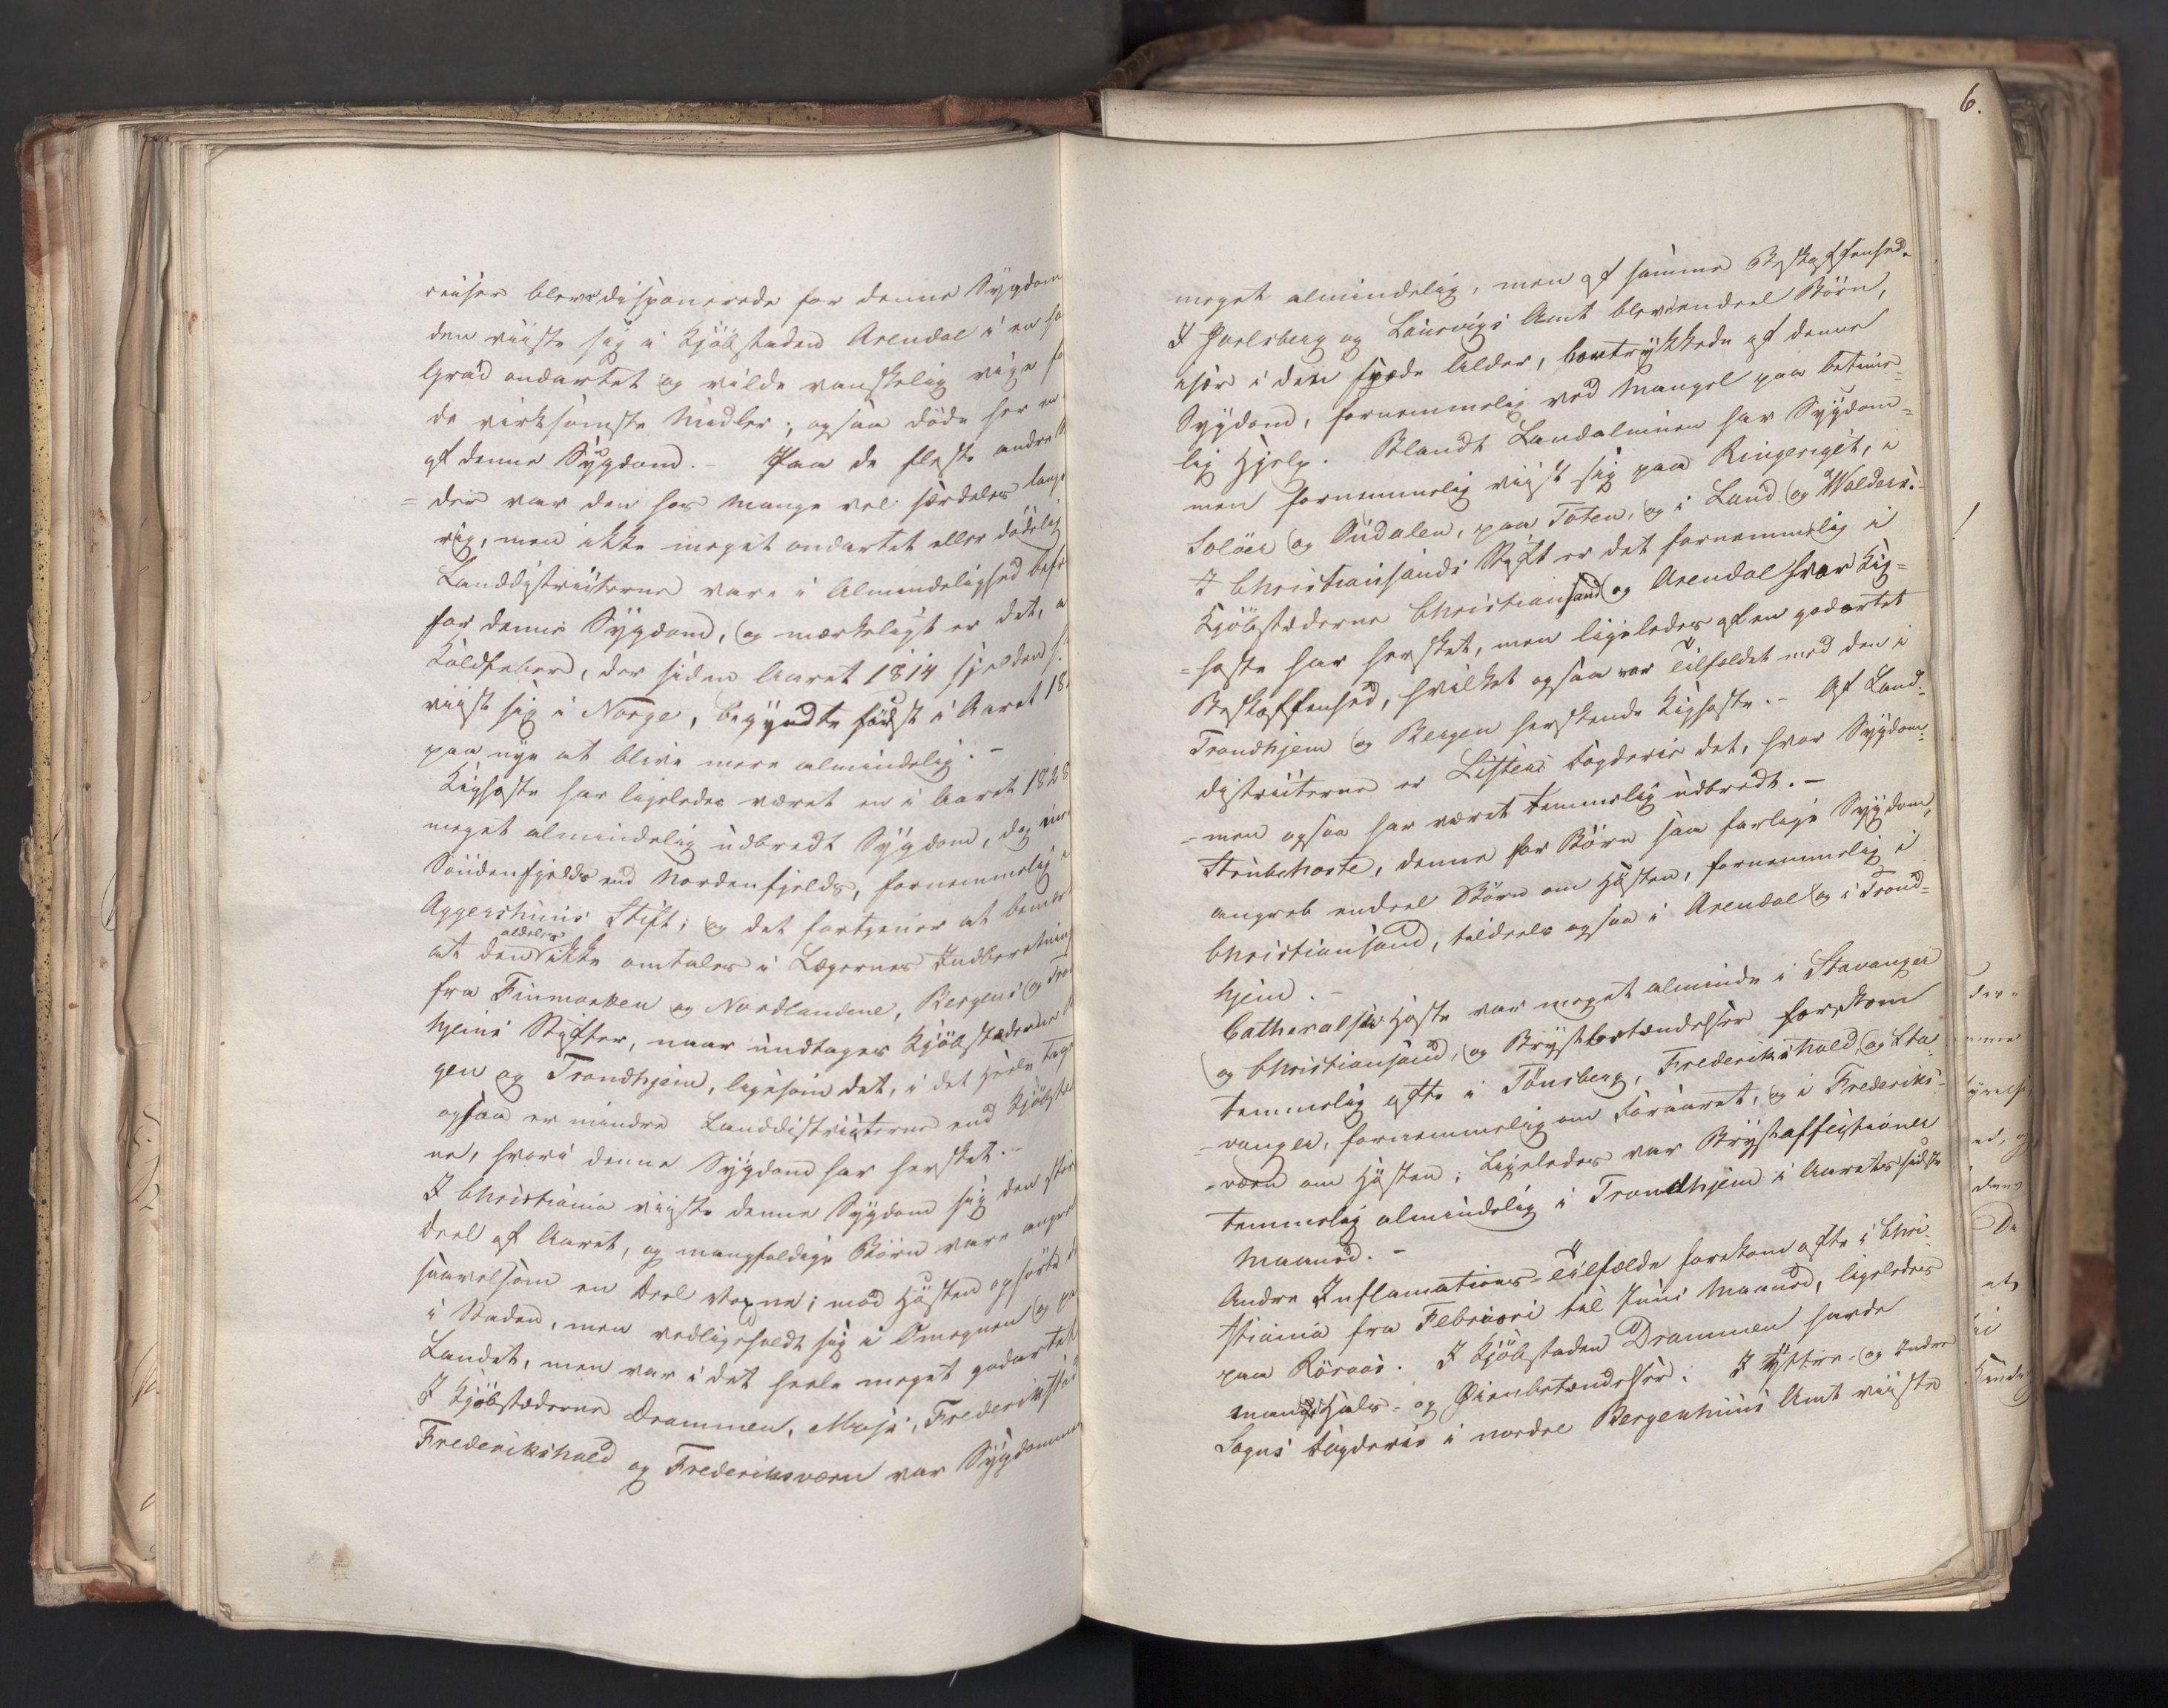 riuser bleve disponerede for denne Sygdom
den viiste sig i Kjöbstaden Arendal i en
Grad ondartet og vilde vanskelig vige
de virksomste Midler; ogsaa döde her en
af denne Sygdom. – Paa de fleste andre
= der var den hos mange vel særdeles lang
rig, men ikke meget ondartet eller dödelig
Landdistricterne vare i Almindelighed
for denne Sygdom, og mærkeligt er det, a
Koldfeber, der siden Aaret 1814 sjelden
viist sig i Norge, begyndte först i Aaret 18
paa nye at blive mere almindelig. –
Kighoste har ligeledes været en i Aaret 1828
meget almindelig udbredt Sygdom, dog
Söndenfjelds end Nordenfjelds, fornemmelig i
Aggershuus Stift; og det fortjener at
aldeles
at den ikke omtales i Lægernes Indberetning
fra Finmarken og Nordlandene, Bergens og
hjems Stifter, naar undtages Kjöbstæderne
gen og Trondhjem, ligesom det, i det Hele
ogsaa er mindre Landdistricterne end Kjöbstæ
ne, hvori denne Sygdom har hersket. –
I Christiania viiste denne Sygdom sig den
Deel af Aaret, og mangfoldige Börn vare
saavelsom en Deel Voxne; mod Hösten ophörte
i Staden, men vedligeholdt sig i Omegnen og
Landet, men var i det heele meget godartet
I Kjöbstæderne Drammen, Moss, Frederikstad
Frederikshald og Frederiksværn var Sygdommen
6.
meget almindelig, men af samme Beskaffenhed.
I Jarlsberg og Laurvigs Amt bleve endeel Börn,
især i den spæde Alder, bortrykkede af denne
Sygdom, fornemmelig ved Mangel paa betime=
lig Hjelp. Blandt Landalmuen har Sygdom=
men fornemmelig viist sig paa Ringeriget, i
Solöer og Oudalen, paa Toten, og i Land og Walders.
I Christiansands Stift er det fornemmelig i
Kjöbstæderne Christiansand og Arendal hvor Kig=
= hoste har hersket, men ligeledes af en godartet
Beskaffenhed, hvilket ogsaa var Tilfældet med den i
Trondhjem og Bergen herskende Kighoste. – Af Land=
districterne er Listers Fogderie det, hvor Sygdom=
– men ogsaa har været temmelig udbredt. –
Strubehoste, denne for Börn saa farlige Sygdom,
angreb endeel Börn om Hösten, fornemmelig i
Christiansand, tildeels ogsaa i Arendal og i Trond=
hjem. –
Catharalske Hoste var meget almindl i Stavanger
og Christiansand, og Brystbetændelser forekom
temmelig ofte i Tönsberg, Frederikshald og Sta=
– vanger, fornemmelig om Foraaret, og i Frederiks=
– værn om Hösten; Ligeledes var Brystaffectioner
temmelig almindelig i Trondhjem i Aarets sidste
Maaned. –
Andre Inflamations-Tilfælde forekom ofte i Chri=
stiania fra Februari til Juni Maaned, ligeledes
paa Röraas. I Kjöbstaden Drammen havde
mange Hals- og Øienbetændelser. I Yttre- og Indre
Sogns Fogderie i nordre Bergenhuus Amt viiste